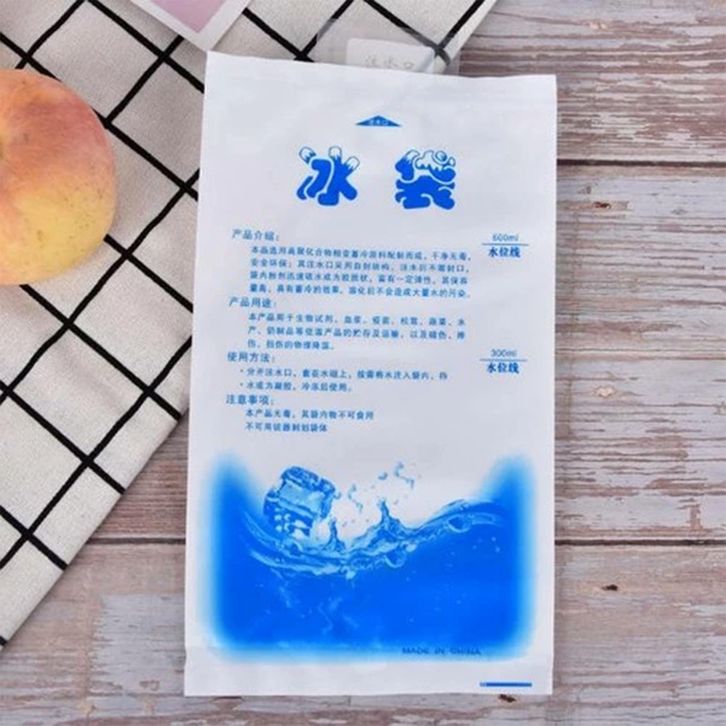 注水口
冰袋
产品介绍:
600ml
水位线
本品选用高聚化合物相变蓄冷原料配制而成,干净无毒,
安全环保;其注水口采用自封结构,注水后不需封口,
袋内粉剂迅速吸水成为胶质状,富有一定弹性,其保容
量高,具有蓄冷的效果,溶化后不会造成大量水的污染。
产品用途:
本产品用于生物试剂,血浆、疫苗、松茸、蔬菜、水
产、奶制品等低温产品的贮存及运输,以及磕伤、摔
伤、扭伤的物理降温。
300ml
水位线
使用方法:
·分开注水口,套在水咀上,按需将水注入袋内,待
·水成为凝胶,冷冻后使用。
注意事项:
本产品无毒,其袋内物不可食用
不可用锐器刺划袋体
MADE IN CHINA